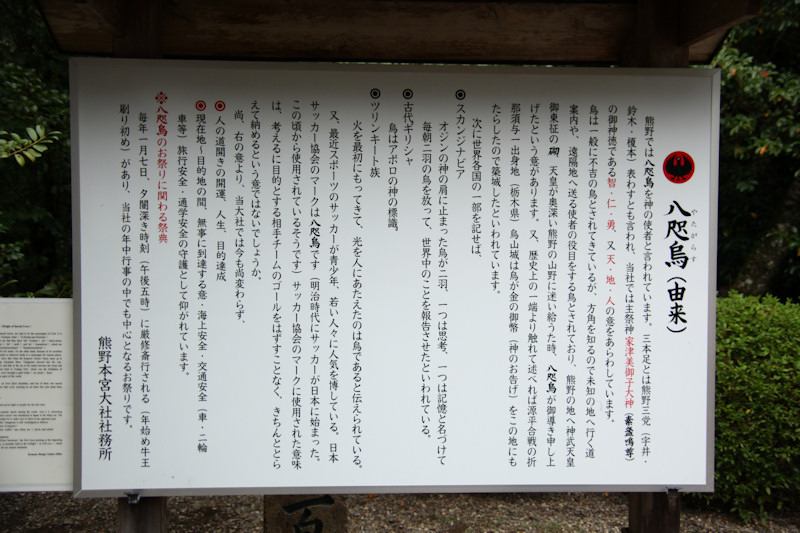 八咫烏(由来)
やたがらす
熊野では八咫烏を神の使者と言われています。三本足とは熊野三党(宇井・
鈴木・榎本)表わすとも言われ、当社では主祭神家津美御子大神(素盞鳴尊)
の御神徳である智・仁・勇、又天・地・人の意をあらわしています。
烏は一般に不吉の鳥とされてきているが、方角を知るので未知の地へ行く道
案内や、遠隔地へ送る使者の役目をする鳥とされており、熊野の地へ神武天皇
御東征の砌、天皇が奥深い熊野の山野に迷い給うた時、八咫烏が御導き申し上
げたという意があります。又、歴史上の一端より触れて述べれば源平合戦の折
那須与一出身地(栃木県)烏山城は烏が金の御幣(神のお告げ)をこの地にも
たらしたので築城したといわれています。
次に世界各国の一部を記せば、
◉スカンジナビア
オジンの神の肩に止まった烏が二羽、一つは思考、一つは記憶と名づけて
毎朝二羽の烏を放って、世界中のことを報告させたといわれている。
◉古代ギリシャ
烏はアポロの神の標識。
◉ツリンキート族
火を最初にもってきて、光を人にあたえたのは烏であると伝えられている。
又、最近スポーツのサッカーが青少年、若い人々に人気を博している。日本
サッカー協会のマークは八咫烏です(明治時代にサッカーが日本に始まった。
この頃から使用されているそうです)サッカー協会のマークに使用された意味
は、考えるに目的とする相手チームのゴールをはずすことなく、きちんととら
えて納めるという意ではないでしょうか。
尚、右の意より、当大社では今も尚変わらず、
◉人の道開きの開運、人生、目的達成、
◉現在地、目的地の間、無事に到達する意・海上安全・交通安全(車・二輪
車等)旅行安全・通学安全の守護として仰がれています。
※八咫烏のお祭りに関わる祭典
毎年一月七日、夕闇深き時刻(午後五時)に厳修斎行される(年始め牛王
刷り初め)があり、当社の年中行事の中でも中心となるお祭りです。
熊野本宮大社社務所